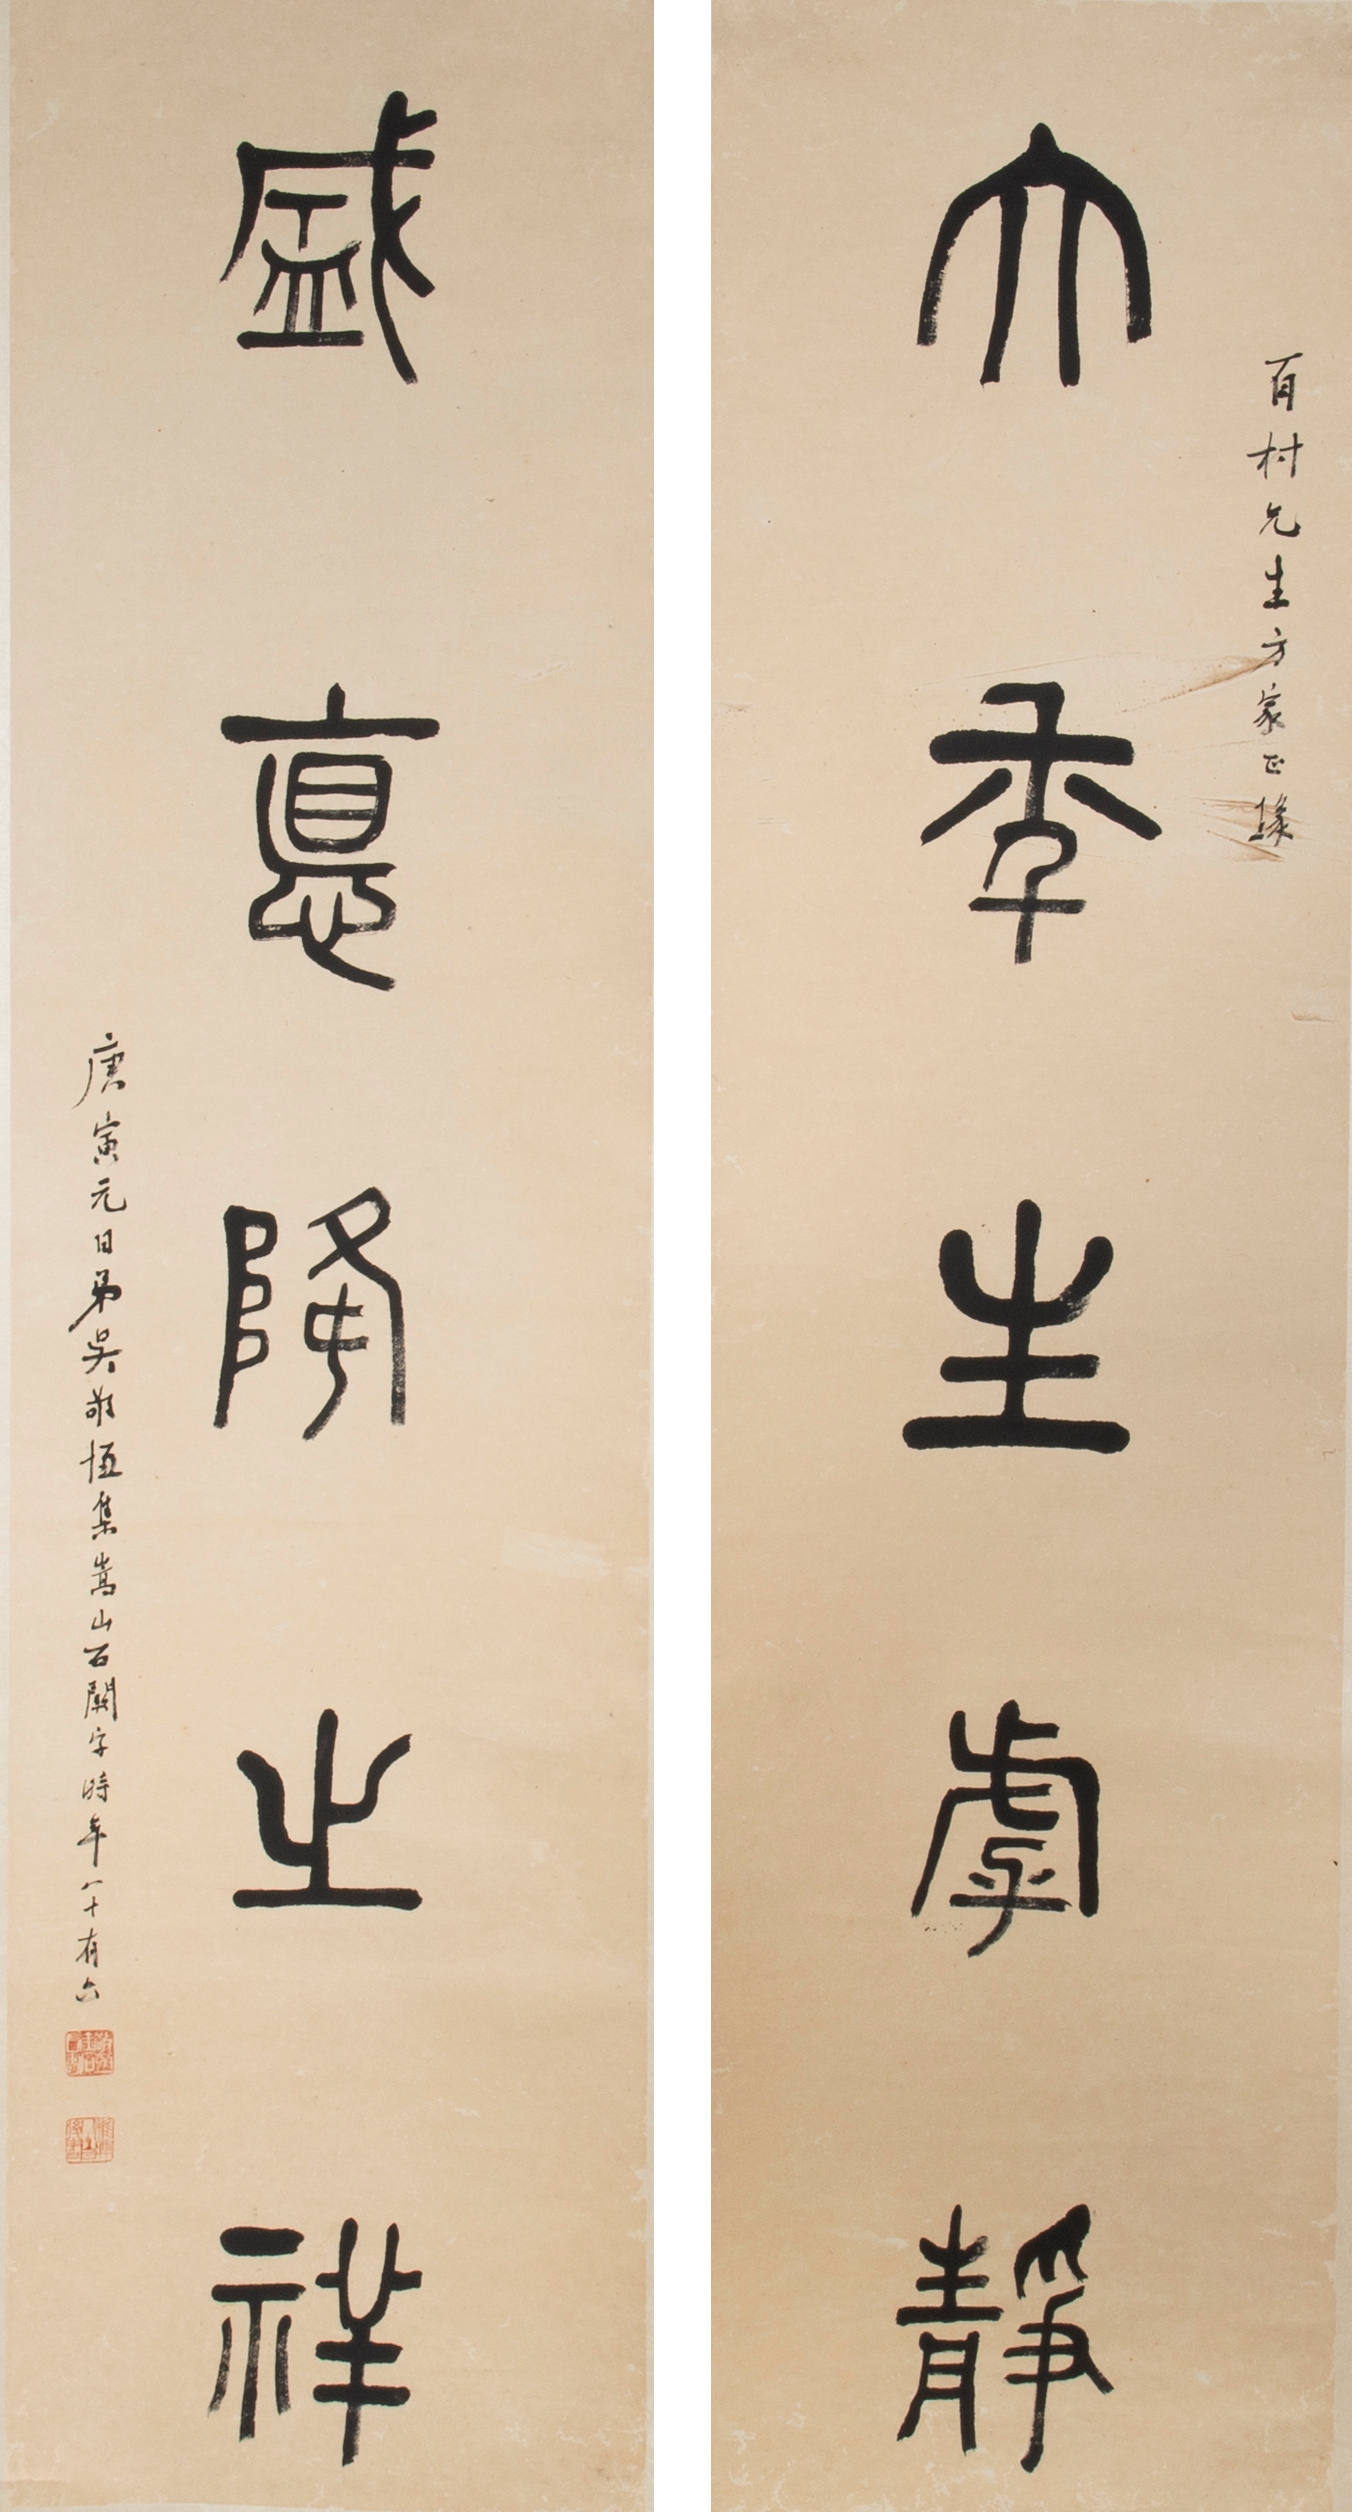 百村先生方家正
大秊生虖靜
盛悳降之祥
庚寅元日弟吳敬恆集嵩山石闕字時年八十有六